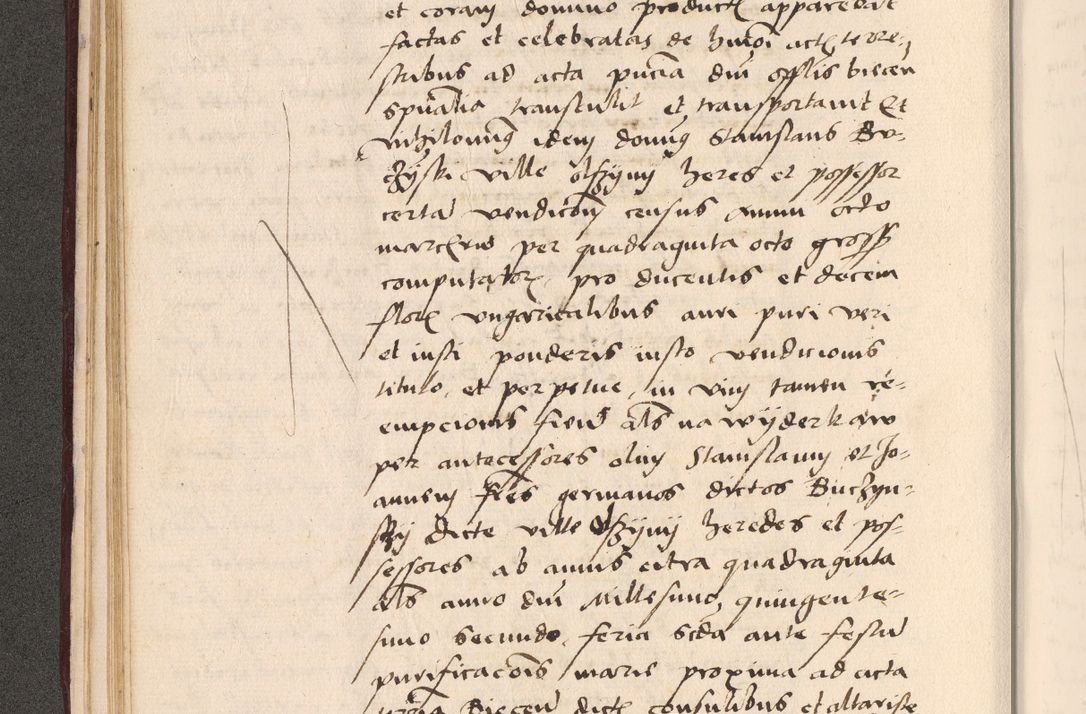 et coram domino product apparebit
factas et celebratas de hmoi act terre-
stribus ad acta pncia dni offlis biecen
spualia transtulit et transportavit Et
nihilominus idem dominus Stanislaus Bu-
czyski ville olszyny heres et possessor
certa vendicony census annui octo
marcarum per quadraginta octo gross
computator pro ducentis et decem
flor ungaricalibus auri puri veri
et iusti ponderis iusto vendicionis
titulo et perpetue in vim tamen re-
empcionis fiend als na wyderkaw
per antecessores olim Stanislaum et Jo-
annem fres germanos dictos Buczyn-
sky dicte ville olszyny heredes et pos-
sessores ab annis citra quadraginta
als anno dni Millesimo quingente-
simo secundo feria scda ante festu
purificacois marie proxima ad acta
Biecen dict consulibus et altariste